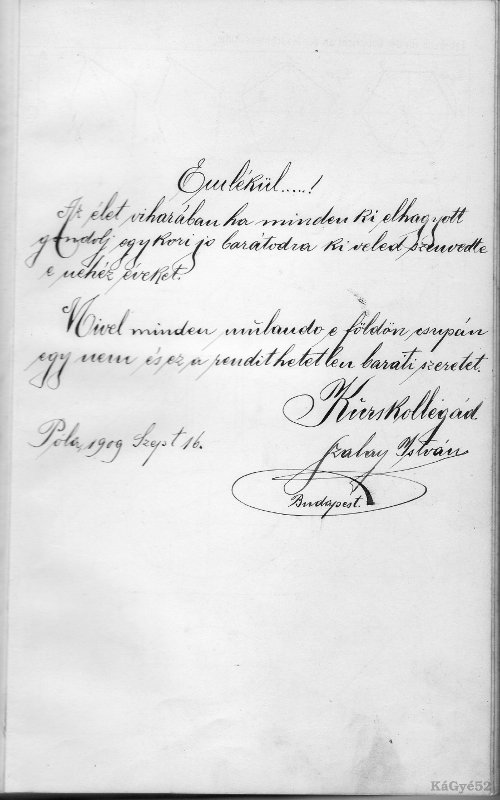 Emlékül.....!
Az élet viharában ha minden ki elhagyott
gondolj egykori jo barátodra ki veled szenvedte
e nehéz éveket.
Mivel minden mulando e földön, csupán
egy nem és ez a rendithetetlen baráti szeretet.
Kurskollégád
Pola, 1909 Szept 16.
Szalay István
Budapest.
KáGyé52